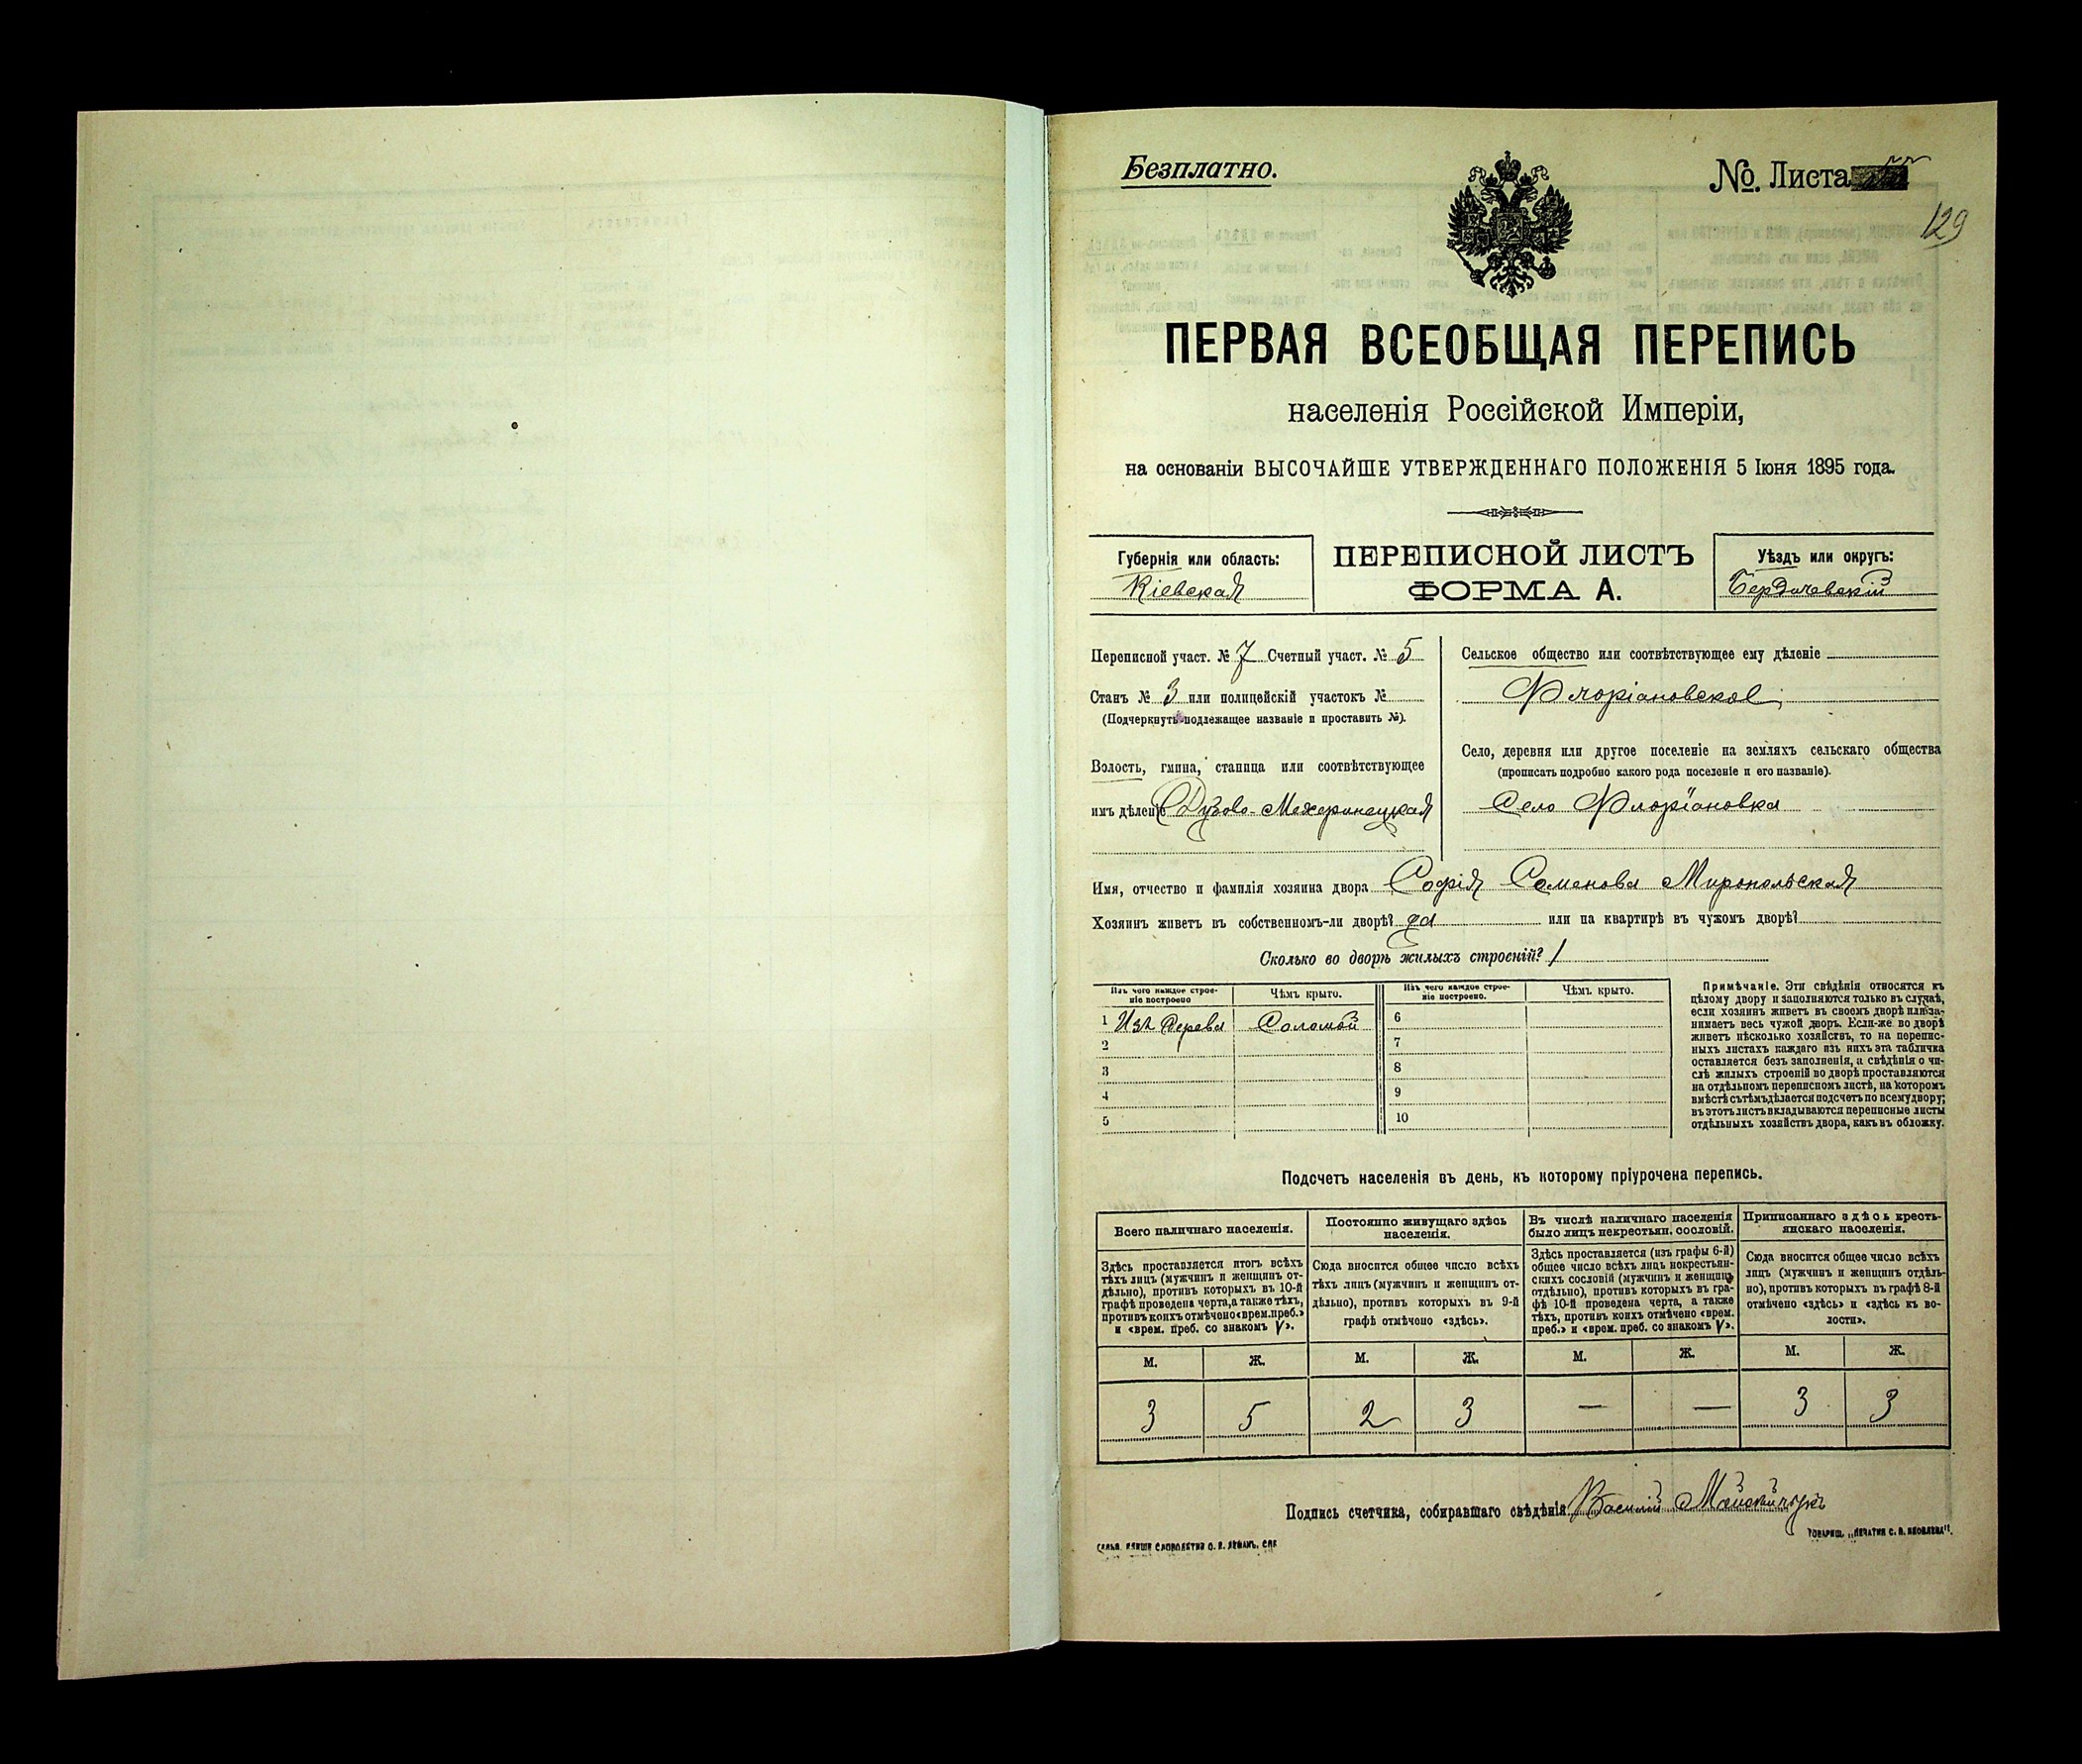 Безплатно.
№. Листа 55
129
ПЕРВАЯ ВСЕОБЩАЯ ПЕРЕПИСЬ
населенія Россійской Имперіи,
на основаніи ВЫСОЧАЙШЕ УТВЕРЖДЕННАГО ПОЛОЖЕНІЯ 5 Іюня 1895 года.
Губернія или область:
Кіевская
ПЕРЕПИСНОЙ ЛИСТЪ
ФОРМА А.
Уѣздъ или округъ:
Бердичевскій
Переписной участ. № 7 Счетный участ. № 5
Станъ № 3 или полицейскій участокъ №
(Подчеркнуть подлежащее названіе и проставить №).
Волость, гмина, станица или соотвѣтствующее
имъ дѣленіе Дзюбово-Межеринецкая
Сельское общество или соотвѣтствующее ему дѣленіе
Флоріановское
Село, деревня или другое поселеніе на земляхъ сельскаго общества
(прописать подробно какого рода поселеніе и его названіе).
Село Флоріановка
Имя, отчество и фамилія хозяина двора Софія Семенова Миропольская
Хозяинъ живетъ въ собственномъ-ли дворѣ? да или на квартирѣ въ чужомъ дворѣ?
Сколько во дворѣ жилыхъ строеній? 1
Изъ чего каждое строеніе построено
Чѣмъ крыто.
Изъ чего каждое строеніе построено.
Чѣмъ крыто.
1 Изъ дерева Соломой 6
2 7
3 8
4 9
5 10
Примѣчаніе. Эти свѣдѣнія относятся къ
цѣлому двору и заполняются только въ случаѣ,
если хозяинъ живетъ въ своемъ дворѣ или за-
нимаетъ весь чужой дворъ. Если-же во дворѣ
живетъ нѣсколько хозяйствъ, то на перепис-
ныхъ листахъ каждаго изъ нихъ эта табличка
оставляется безъ заполненія, а свѣдѣнія о чи-
слѣ жилыхъ строеній во дворѣ проставляются
на отдѣльномъ переписномъ листѣ, на которомъ
вмѣстѣ съ тѣмъ дѣлается подсчетъ по всему двору;
въ этотъ листъ вкладываются переписные листы
отдѣльныхъ хозяйствъ двора, какъ въ обложку.
Подсчетъ населенія въ день, къ которому пріурочена перепись.
Всего наличнаго населенія.
Здѣсь проставляется итогъ всѣхъ
тѣхъ лицъ (мужчинъ и женщинъ от-
дѣльно), противъ которыхъ въ 10-й
графѣ проведена черта, а также тѣхъ,
противъ коихъ отмѣчено «врем. преб.»
и «врем. преб. со знакомъ V».
Постоянно живущаго здѣсь
населенія.
Сюда вносится общее число всѣхъ
тѣхъ лицъ (мужчинъ и женщинъ от-
дѣльно), противъ которыхъ въ 9-й
графѣ отмѣчено «здѣсь».
Въ числѣ наличнаго населенія
было лицъ некрестьян. сословій.
Здѣсь проставляется (изъ графы 6-й)
общее число всѣхъ лицъ некрестьян-
скихъ сословій (мужчинъ и женщинъ
отдѣльно), противъ которыхъ въ гра-
фѣ 10-й проведена черта, а также
тѣхъ, противъ коихъ отмѣчено «врем.
преб.» и «врем. преб. со знакомъ V».
Приписаннаго здѣсь кресть-
янскаго населенія.
Сюда вносится общее число всѣхъ
лицъ (мужчинъ и женщинъ отдѣль-
но), противъ которыхъ въ графѣ 8-й
отмѣчено «здѣсь» и «здѣсь къ во-
лости».
М. Ж. М. Ж. М. Ж. М. Ж.
3 5 2 3 — — 3 3
Подпись счетчика, собиравшаго свѣдѣнія Василій
ТОВАРИЩ. „ПЕЧАТНЯ С. П. ЯКОВЛЕВА".